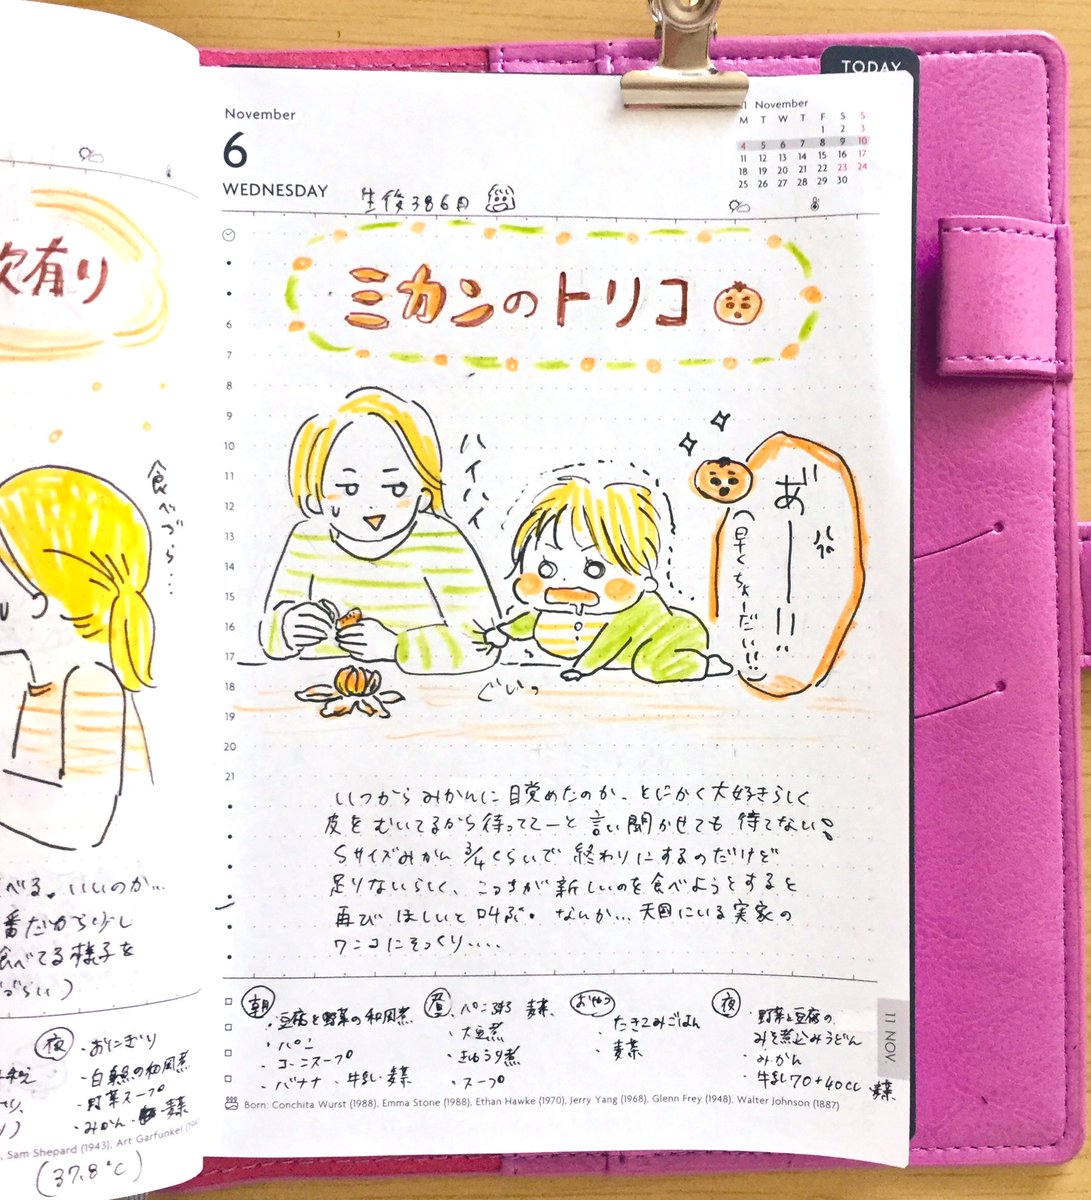 欠有り
食べづら…
べる。いいのか…
番だから少し
食べてる様子を
づらい)
夜
・おにぎり
・白身魚の和風煮
・野菜スープ
・みかん ・麦茶
Sam Shepard (1943), Art Garfunkel
(37.8℃)
TODAY
November
6
WEDNESDAY
生後386日
11 November
M T W T F S S
1 2 3
4 5 6 7 8 9 10
11 12 13 14 15 16 17
18 19 20 21 22 23 24
25 26 27 28 29 30
ミカンのトリコ
6
7
8
9
10
11
12
13
14
15
16
17
18
19
20
21
ハイハイ
あ゛ーーー!!
(早くちょーだい!!)
ぐいっ
いつからみかんに目覚めたのか、とにかく大好きらしく
皮をむいてるから待っててーと言い聞かせても待てない!
Sサイズみかん 3/4くらいで終わりにするのだけど
足りないらしく、こっちが新しいのを食べようとすると
再びほしいと叫ぶ。なんか…天国にいる実家の
ワンコにそっくり….
朝
・豆腐と野菜の和風煮
・パン
・コーンスープ
・バナナ ・牛乳・麦茶
昼
・パン粥 麦茶
・大豆煮
・きゅうり煮
・スープ
おやつ
・たきこみごはん
・麦茶
夜
・野菜と豆腐の
みそ煮込みうどん
・みかん
・牛乳70+40cc ・麦茶
11 NOV
Born: Conchita Wurst (1988), Emma Stone (1988), Ethan Hawke (1970), Jerry Yang (1968), Glenn Frey (1948), Walter Johnson (1887)